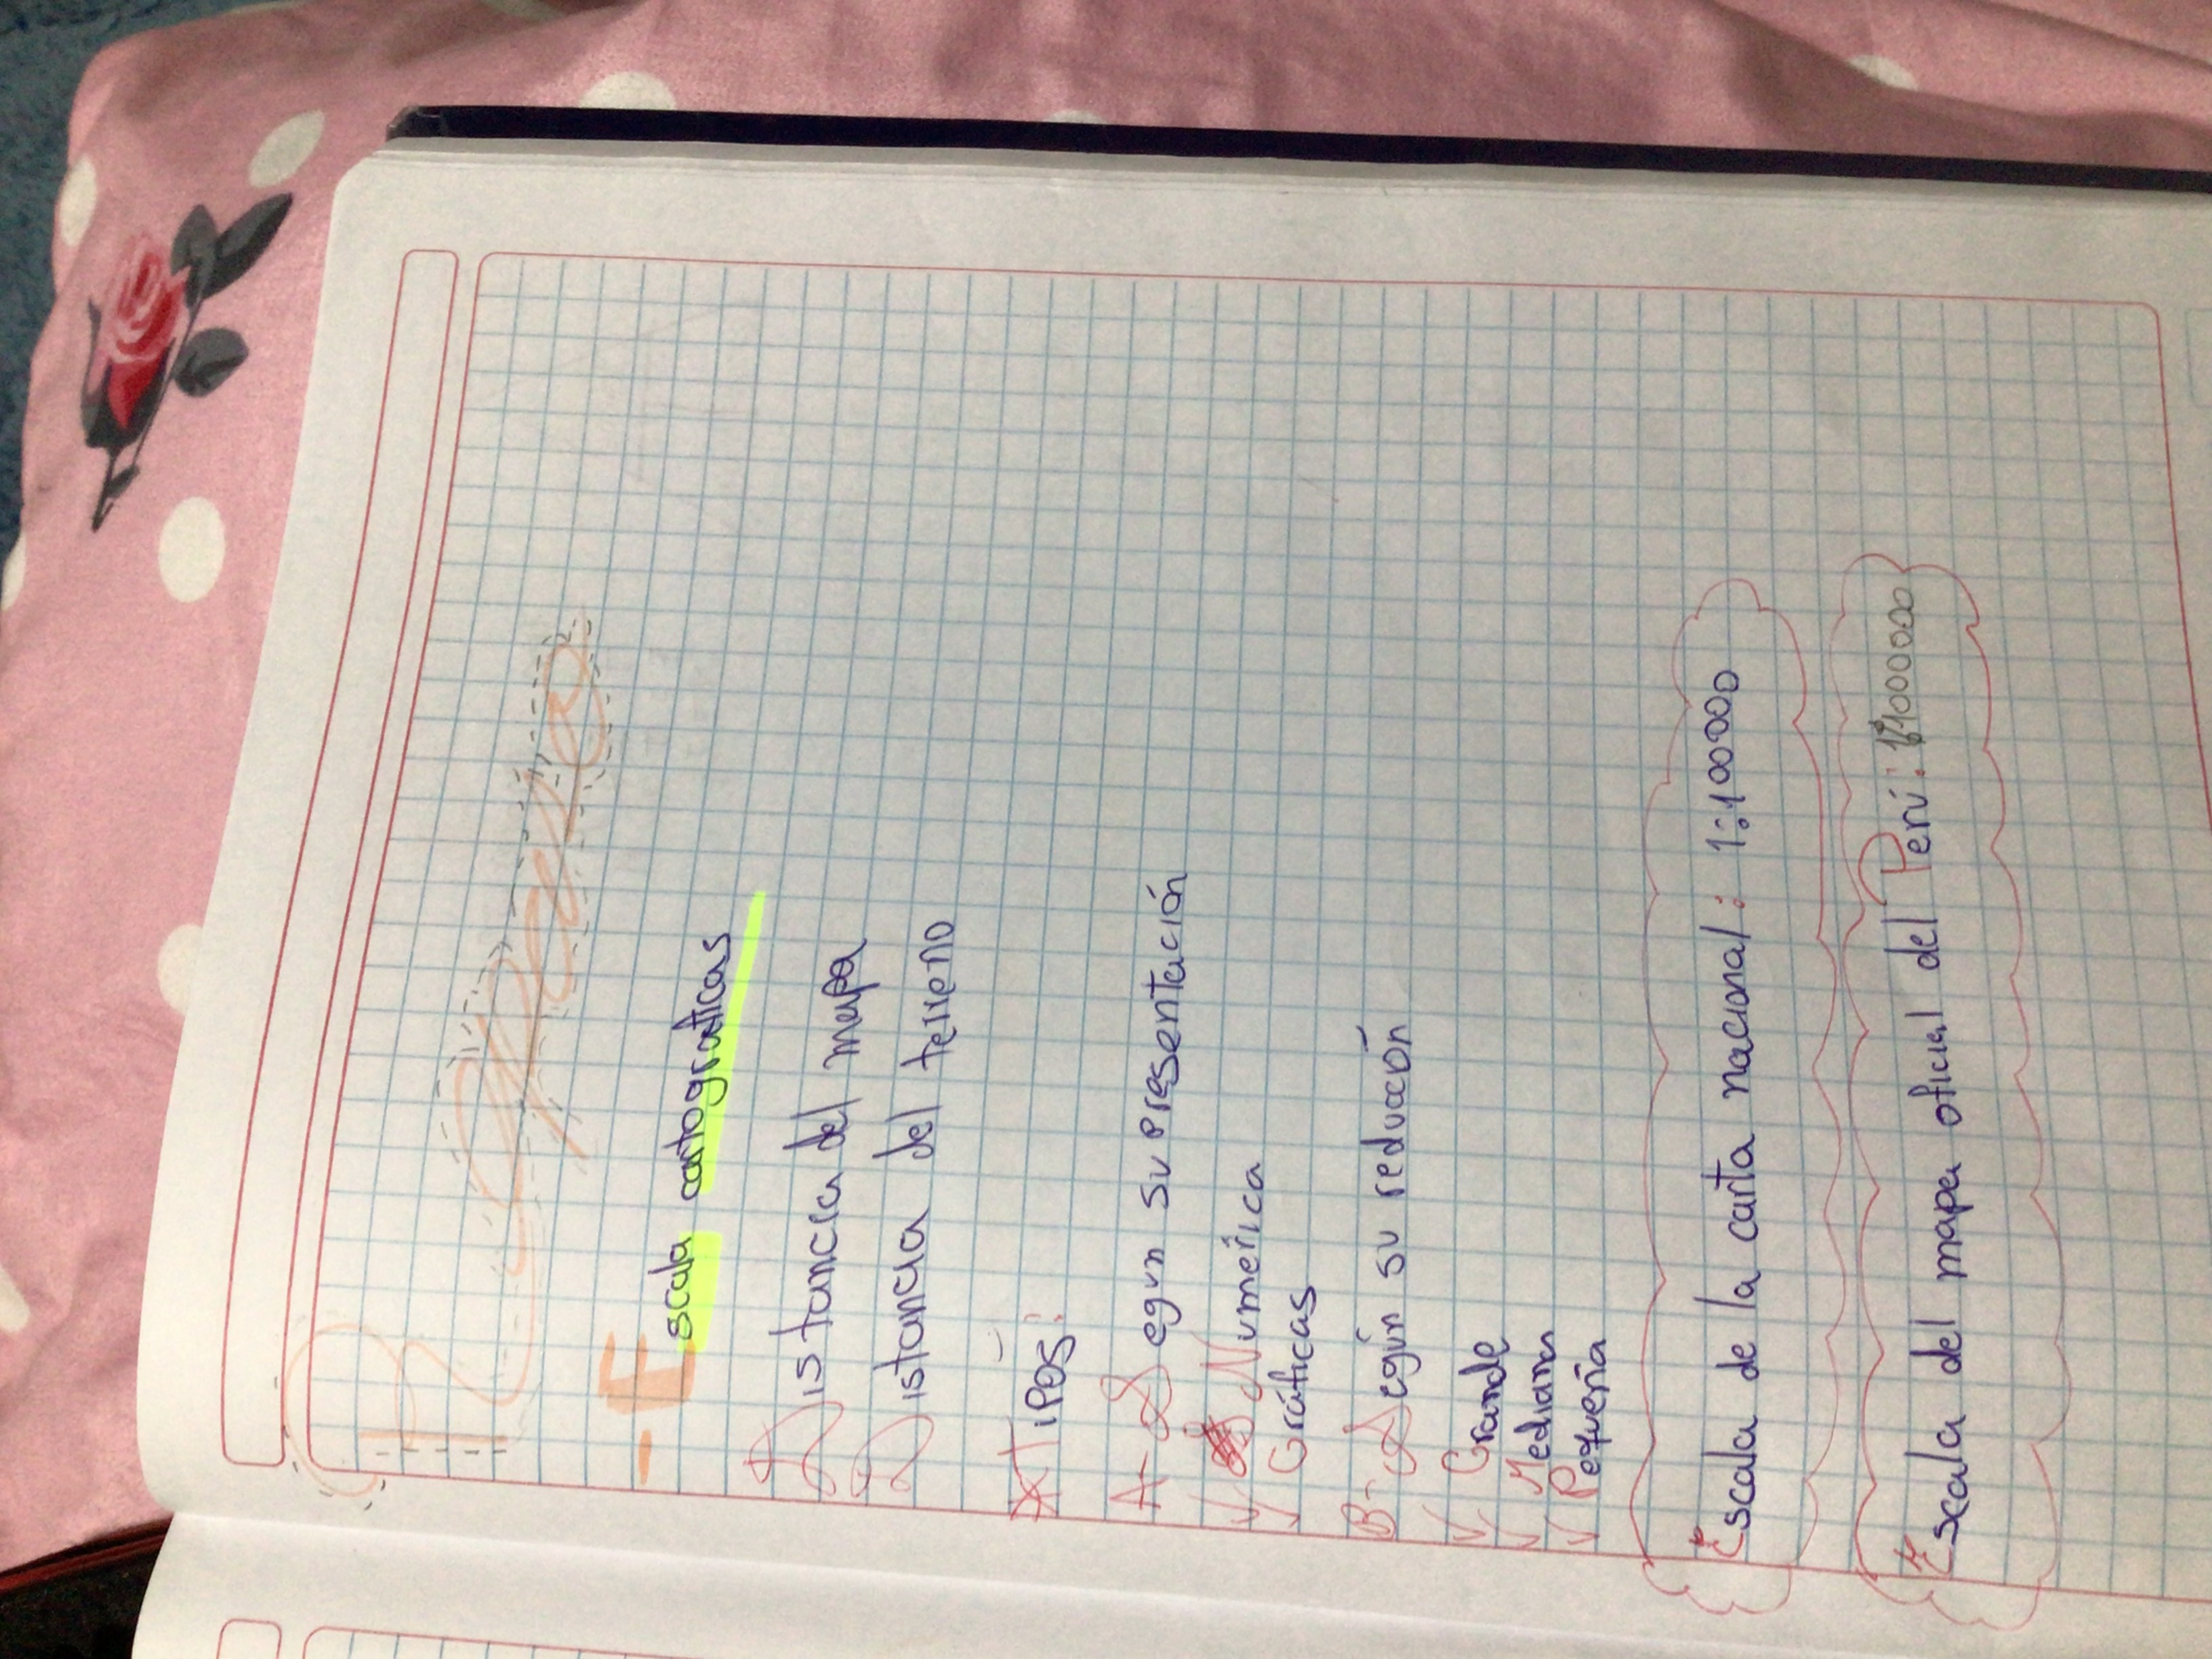 Repaso
- Escala cartograficas
Distancia del mapa
Distancia del terreno
* Tipos:
A- Según su presentación
✓ Numérica
✓ Gráficas
B- Según su reducción
✓ Grande
✓ Mediana
✓ Pequeña
Escala de la carta nacional: 1:100000
Escala del mapa oficial del Perú: 1:1000000